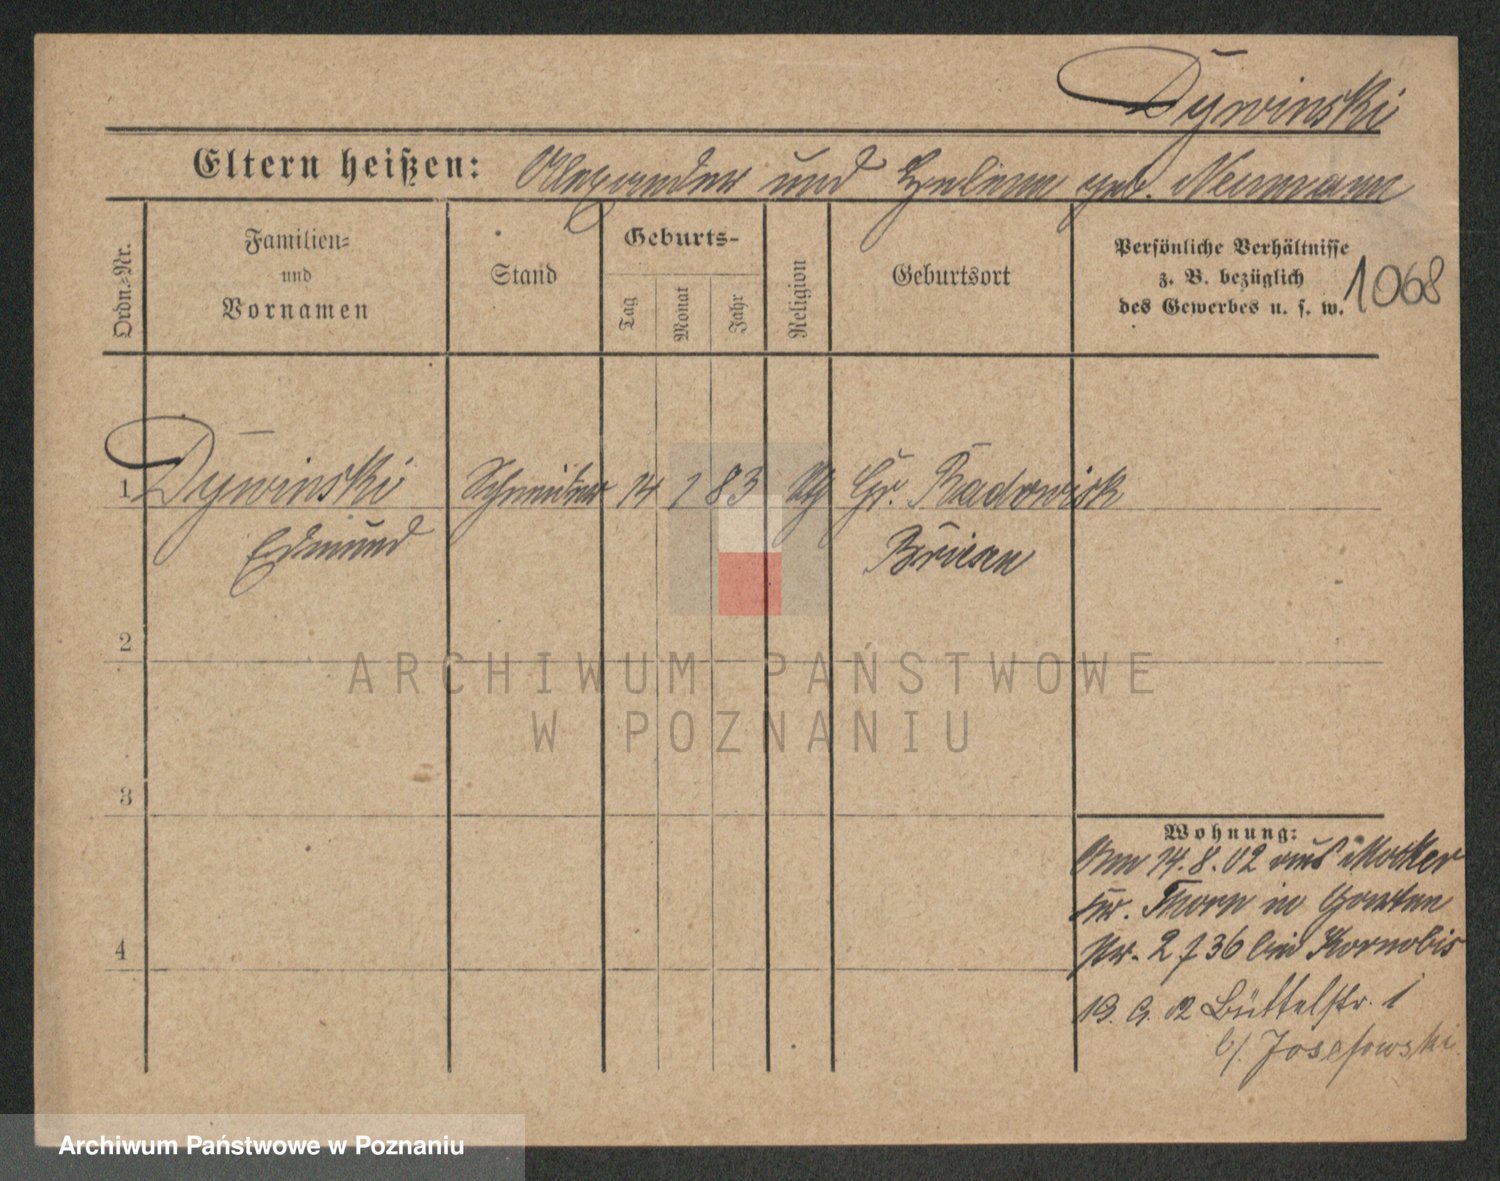 Dywinski
Eltern heißen: Alexander und Helene geb. Neumann
Ordn.-Nr.
Familien-
und
Vornamen
Stand
Geburts-
Tag
Monat
Jahr
Religion
Geburtsort
Persönliche Verhältnisse
z. B. bezüglich
des Gewerbes u. s. w.
1068
1 Dywinski Schneider 14 1 83 kth Gr. Radowisk
Edmund Briesen
2
3
4
Wohnung:
Am 14.8.02 aus Mocker
Kr. Thorn in
Nr. 2 736 bei Kornobis
13. 9. 02 Büttelstr. 1
b/. Josefowski
ARCHIWUM PAŃSTWOWE
W POZNANIU
Archiwum Państwowe w Poznaniu